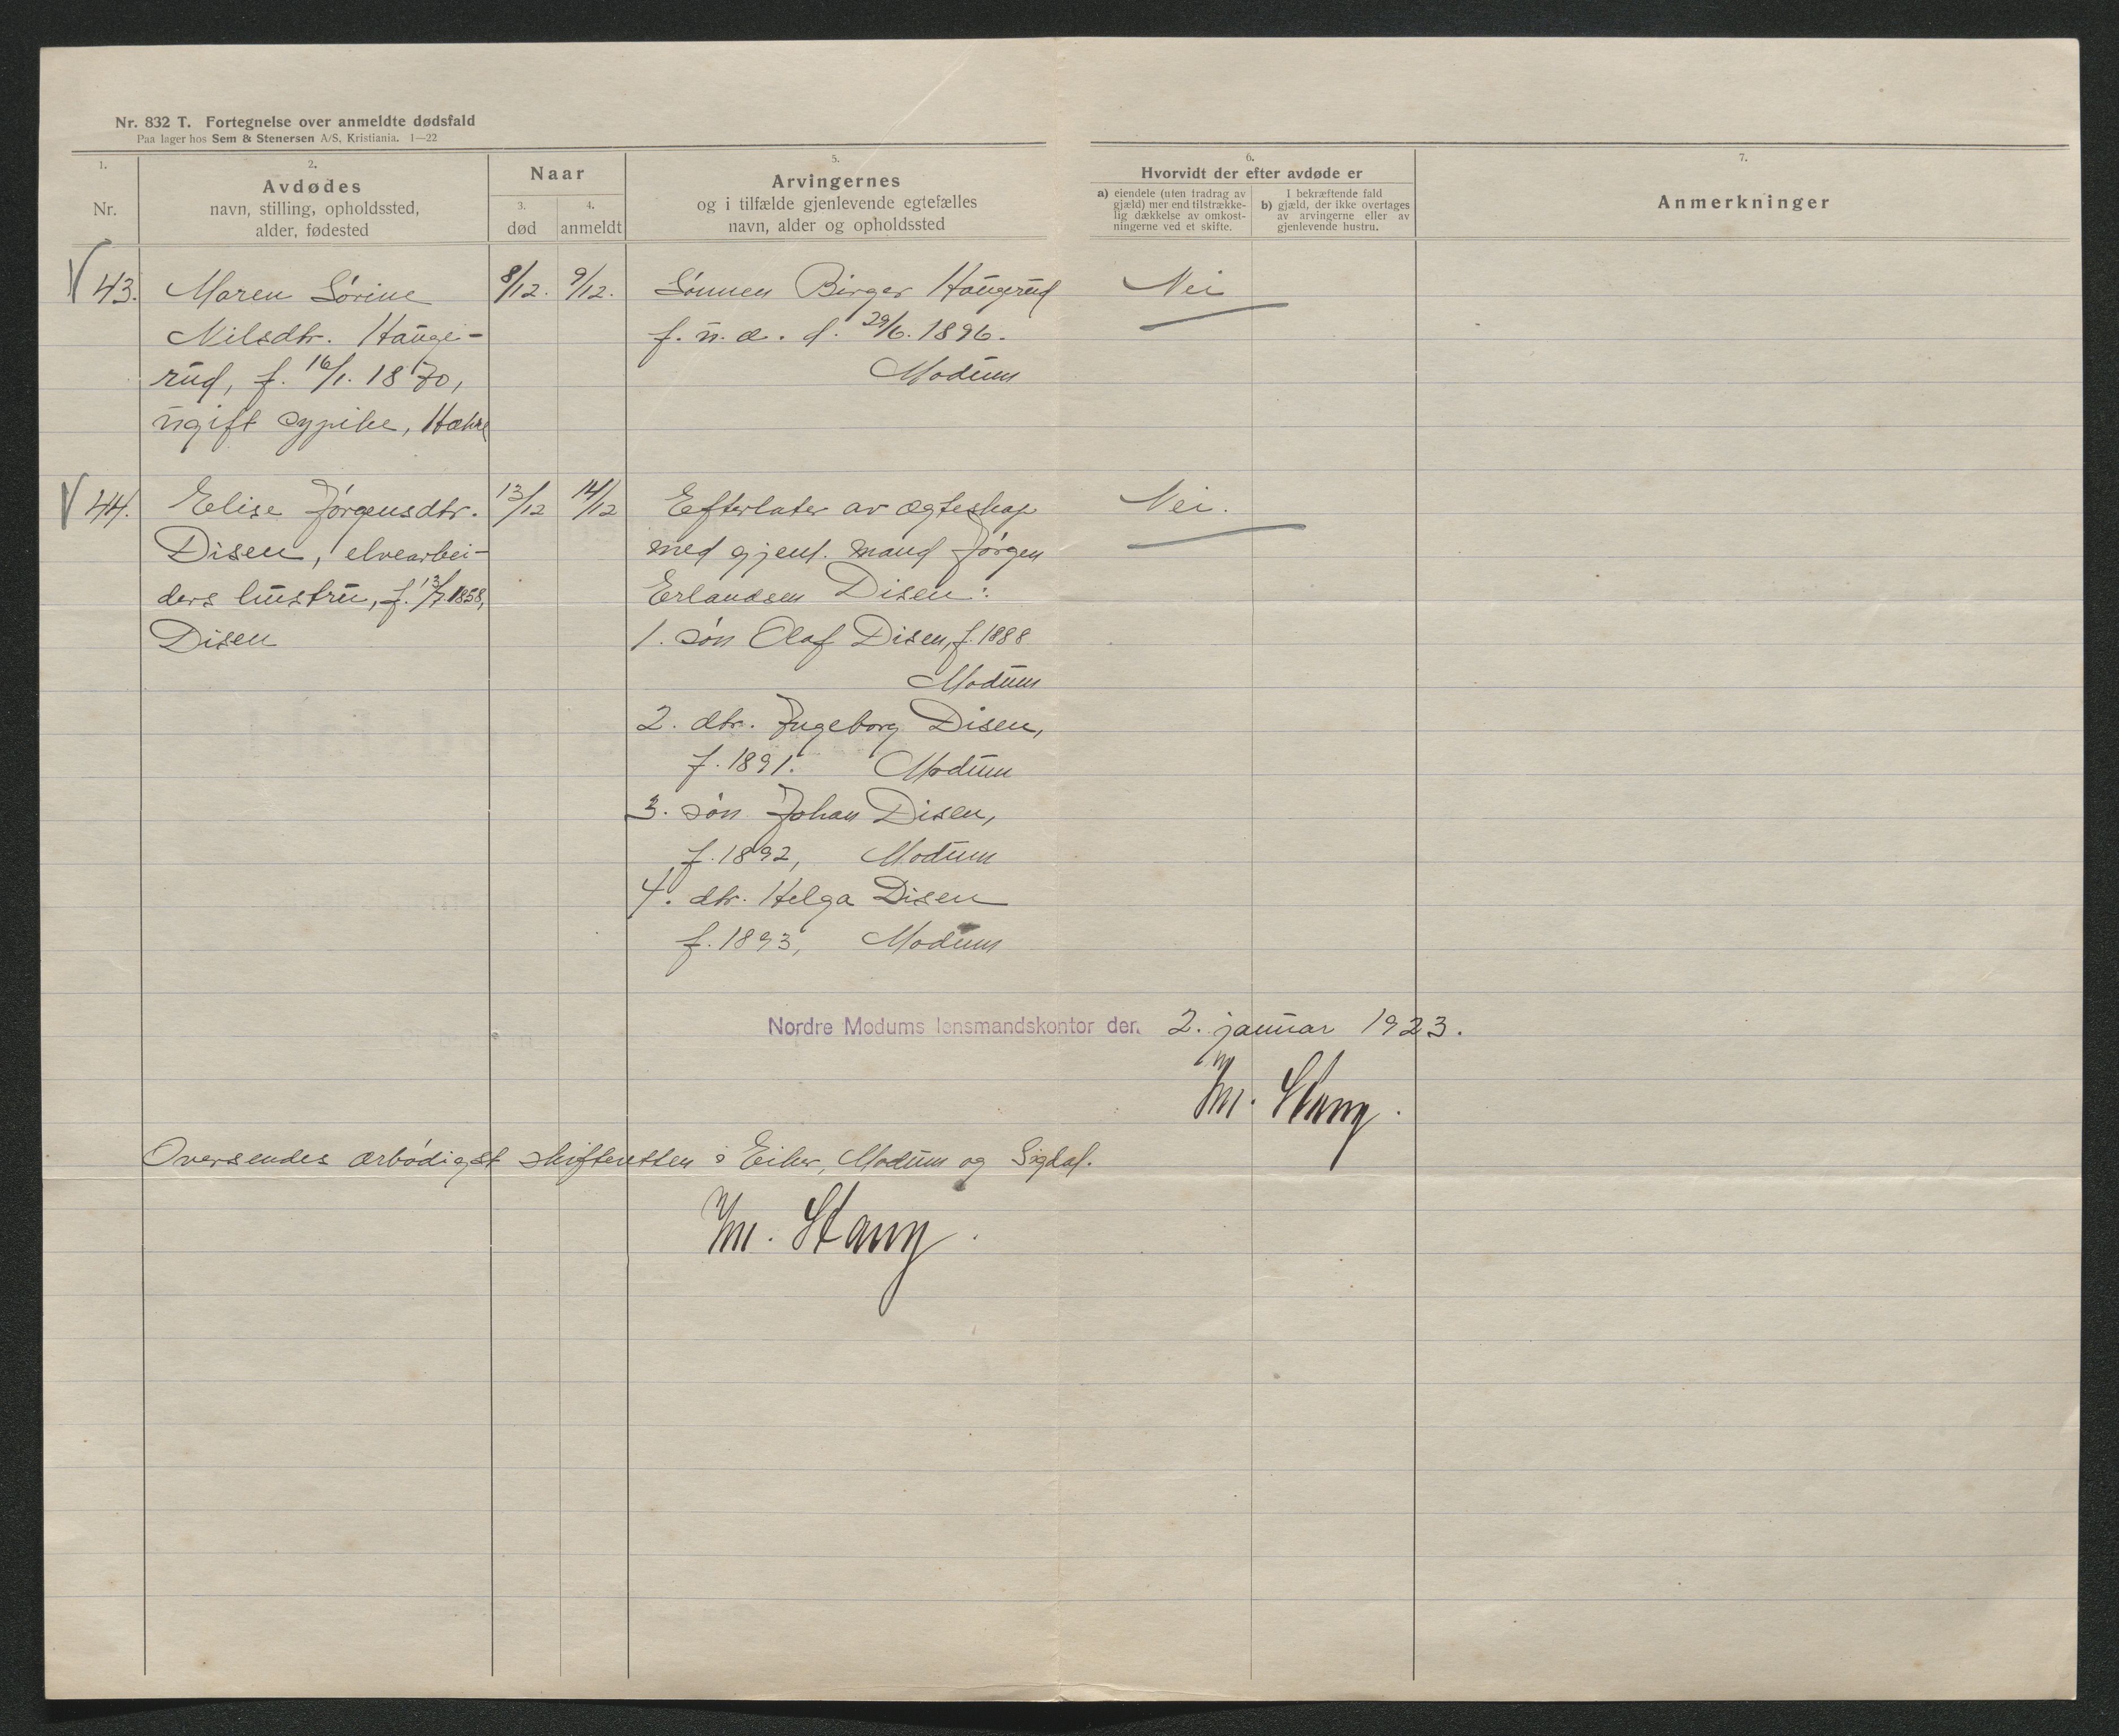 Nr. 832 T. Fortegnelse over anmeldte dødsfald
Paa lager hos Sem & Stenersen A/S, Kristiania. 1—22
1.
Nr.
2.
Avdødes
navn, stilling, opholdssted,
alder, fødested
Naar
3.
død
4.
anmeldt
5.
Arvingernes
og i tilfælde gjenlevende egtefælles
navn, alder og opholdssted
6.
Hvorvidt der efter avdøde er
a) eiendele (uten fradrag av
gjæld) mer end tilstrække-
lig dækkelse av omkost-
ningerne ved et skifte.
I bekræftende fald
b) gjæld, der ikke overtages
av arvingerne eller av
gjenlevende hustru.
7.
Anmerkninger
43.
Maren Sørine
Nilsdtr. Hauge-
rud, f. 16/1. 1870,
ugift sypike,
8/12.
9/12.
Sønnen Birger Haugerud
f. u. æ. d. 29/6. 1896.
Modum
Nei
44.
Elise Jørgensdtr.
Disen, elvearbei-
ders hustru, f. 13/7. 1858,
Disen
13/12
14/12
Efterlater av ægteskap
med gjenl. mand Jørgen
Erlandsen Disen:
1. søn Olaf Disen, f. 1888
Modum
2. dtr. Ingeborg Disen,
f. 1891. Modum
3. søn Johan Disen,
f. 1892, Modum
4. dtr. Helga Disen
f. 1893, Modum
Nei.
Nordre Modums lensmandskontor den 2. januar 1923.
M. Stang.
Oversendes ærbødigst skifteretten i Eiker, Modum og Sigdal.
M. Stang.